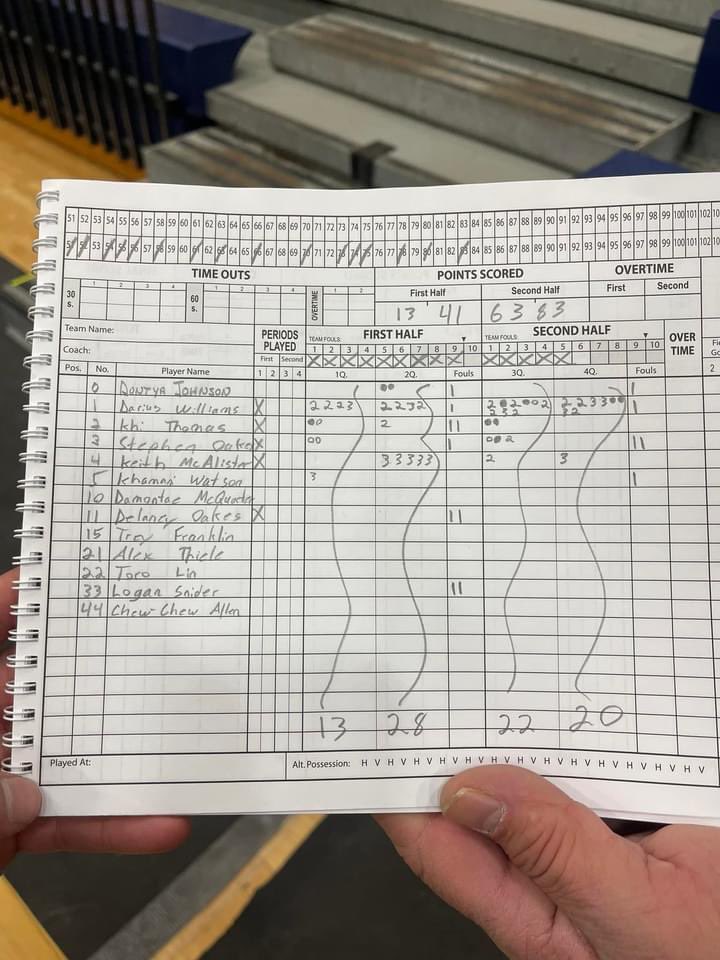 51 52 53 54 55 56 57 58 59 60 61 62 63 64 65 66 67 68 69 70 71 72 73 74 75 76 77 78 79 80 81 82 83 84 85 86 87 88 89 90 91 92 93 94 95 96 97 98 99 100 101 102
51 52 53 54 55 56 57 58 59 60 61 62 63 64 65 66 67 68 69 70 71 72 73 74 75 76 77 78 79 80 81 82 83 84 85 86 87 88 89 90 91 92 93 94 95 96 97 98 99 100 101 102
TIME OUTS POINTS SCORED OVERTIME
30 s. 1 2 3 4 60 s. 1 2 3 4 OVERTIME 1 2 First Half Second Half First Second
13 41 63 83
Team Name: PERIODS PLAYED TEAM FOULS: FIRST HALF TEAM FOULS: SECOND HALF OVER TIME
Coach: First Second 1 2 3 4 5 6 7 8 9 10 1 2 3 4 5 6 7 8 9 10
Pos. No. Player Name 1 2 3 4 1Q. 2Q. Fouls 3Q. 4Q. Fouls 2
0 Dontya Johnson
1 Darius Williams X 2 2 2 3 2 2 3 2
2 Khi Thomas X 2
3 Stephen Oakes X
4 Keith McAlister X 3 3 3 3 3 2 3
5 Khamari Watson 3
10 Damontae McQuarter
11 Delaney Oakes X
15 Troy Franklin
21 Alex Thiele
22 Toro Lin
33 Logan Snider
44 Chew-Chew Allen
13 28 22 20
Played At: Alt. Possession: H V H V H V H V H V H V H V H V H V H V H V H V H V